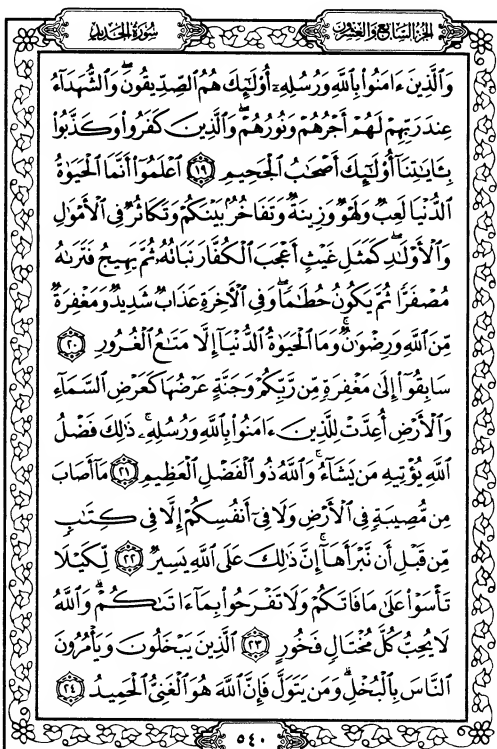 سُورَةُ الحَدِيدِ
الجُزْءُ السَّابِعُ وَالعِشْرُونَ
وَٱلَّذِينَ ءَامَنُواْ بِٱللَّهِ وَرُسُلِهِۦٓ أُوْلَٰٓئِكَ هُمُ ٱلصِّدِّيقُونَۖ وَٱلشُّهَدَآءُ
عِندَ رَبِّهِمۡ لَهُمۡ أَجۡرُهُمۡ وَنُورُهُمۡۖ وَٱلَّذِينَ كَفَرُواْ وَكَذَّبُواْ
بِـَٔايَٰتِنَآ أُوْلَٰٓئِكَ أَصۡحَٰبُ ٱلۡجَحِيمِ ١٩ ٱعۡلَمُوٓاْ أَنَّمَا ٱلۡحَيَوٰةُ
ٱلدُّنۡيَا لَعِبٞ وَلَهۡوٞ وَزِينَةٞ وَتَفَاخُرُۢ بَيۡنَكُمۡ وَتَكَاثُرٞ فِي ٱلۡأَمۡوَٰلِ
وَٱلۡأَوۡلَٰدِۖ كَمَثَلِ غَيۡثٍ أَعۡجَبَ ٱلۡكُفَّارَ نَبَاتُهُۥ ثُمَّ يَهِيجُ فَتَرَىٰهُ
مُصۡفَرّٗا ثُمَّ يَكُونُ حُطَٰمٗاۖ وَفِي ٱلۡأٓخِرَةِ عَذَابٞ شَدِيدٞ وَمَغۡفِرَةٞ
مِّنَ ٱللَّهِ وَرِضۡوَٰنٞۚ وَمَا ٱلۡحَيَوٰةُ ٱلدُّنۡيَآ إِلَّا مَتَٰعُ ٱلۡغُرُورِ ٢٠
سَابِقُوٓاْ إِلَىٰ مَغۡفِرَةٖ مِّن رَّبِّكُمۡ وَجَنَّةٍ عَرۡضُهَا كَعَرۡضِ ٱلسَّمَآءِ
وَٱلۡأَرۡضِ أُعِدَّتۡ لِلَّذِينَ ءَامَنُواْ بِٱللَّهِ وَرُسُلِهِۦۚ ذَٰلِكَ فَضۡلُ
ٱللَّهِ يُؤۡتِيهِ مَن يَشَآءُۚ وَٱللَّهُ ذُو ٱلۡفَضۡلِ ٱلۡعَظِيمِ ٢١ مَآ أَصَابَ
مِن مُّصِيبَةٖ فِي ٱلۡأَرۡضِ وَلَا فِيٓ أَنفُسِكُمۡ إِلَّا فِي كِتَٰبٖ
مِّن قَبۡلِ أَن نَّبۡرَأَهَآۚ إِنَّ ذَٰلِكَ عَلَى ٱللَّهِ يَسِيرٞ ٢٢ لِّكَيۡلَا
تَأۡسَوۡاْ عَلَىٰ مَا فَاتَكُمۡ وَلَا تَفۡرَحُواْ بِمَآ ءَاتَىٰكُمۡۗ وَٱللَّهُ
لَا يُحِبُّ كُلَّ مُخۡتَالٖ فَخُورٍ ٢٣ ٱلَّذِينَ يَبۡخَلُونَ وَيَأۡمُرُونَ
ٱلنَّاسَ بِٱلۡبُخۡلِۗ وَمَن يَتَوَلَّ فَإِنَّ ٱللَّهَ هُوَ ٱلۡغَنِيُّ ٱلۡحَمِيدُ ٢٤
٥٤٠